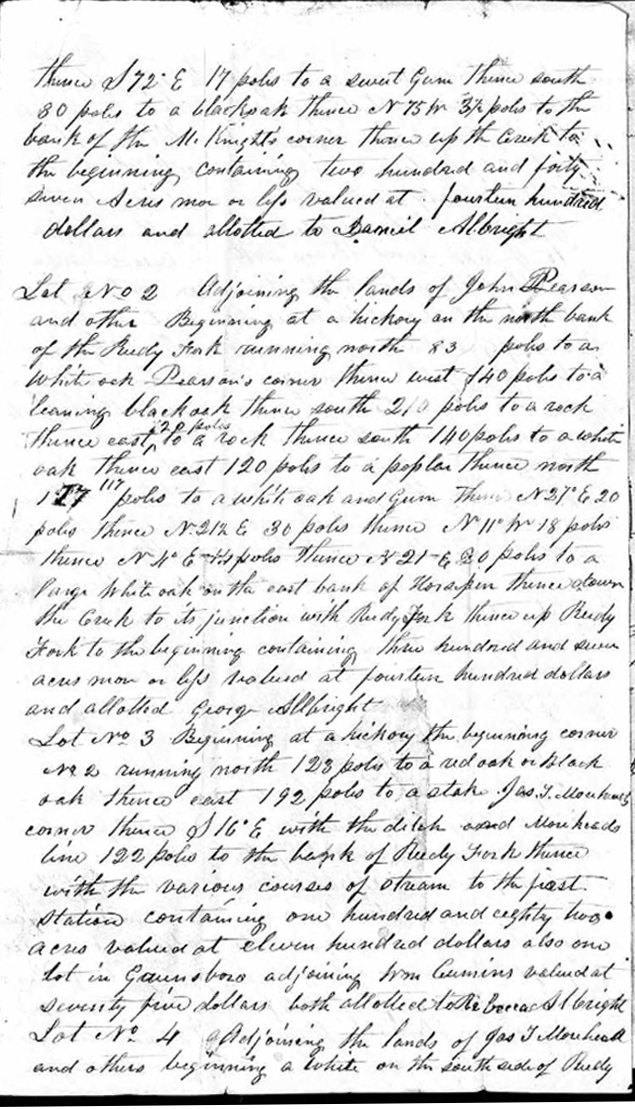 thence S 72° E 17 poles to a sweet Gum thence south
80 poles to a blackoak thence N 75 W 3½ poles to the
bank of the McKnight's corner thence up the Creek to
the beginning containing two hundred and forty
seven Acres mor or less valued at fourteen hundred
dollars and allotted to Daniel Albright
Lot No 2 Adjoining the lands of John Pearson
and other Beginning at a hickory on the north bank
of the Reedy Fork running north 83 poles to a
White oak Pearson's corner thence west 140 poles to a
leaning black oak thence south 210 poles to a rock
thence east 120 poles to a rock thence south 140 poles to a white
oak thence east 120 poles to a poplar thence north
117 117 poles to a white oak and Gum thence N 27° E 20
poles thence N 21½ E 30 poles thence N 11° W 18 poles
thence N 4° E 44 poles thence N 21 E 30 poles to a
large White oak on the east bank of Horsepen thence down
the Creek to its junction with Reedy Fork thence up Reedy
Fork to the beginning containing three hundred and seven
acres mor or less valued at fourteen hundred dollars
and allotted George Albright
Lot No 3 Beginning at a hickory the beginning corner
No 2 running north 123 poles to a red oak or Black
oak thence east 192 poles to a stake Jas. T. Moreheads
corner thence S 16° E with the ditch and Moreheads
line 122 poles to the bank of Reedy Fork thence
with the various courses of stream to the first
station containing one hundred and eighty two
acres valued at eleven hundred dollars also one
lot in Greensboro adjoining Wm Cumins valued at
seventy five dollars both allotted to Rebecca Albright
Lot No. 4 Adjoining the lands of Jas T Morehead
and others beginning a White on the south side of Reedy